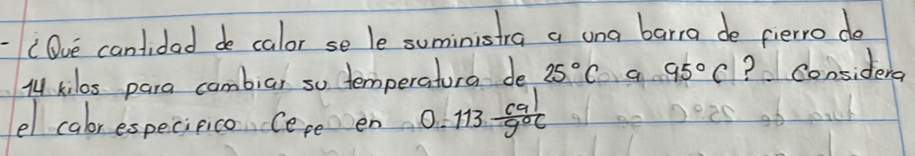 - ¿Qué cantidad de calor se le suministra a una barra de fierro de
14 kilos para cambiar su temperatura de 25°C a 95°C? Considera
el calor especifico Ce Fe en 0.113 cal/g°C